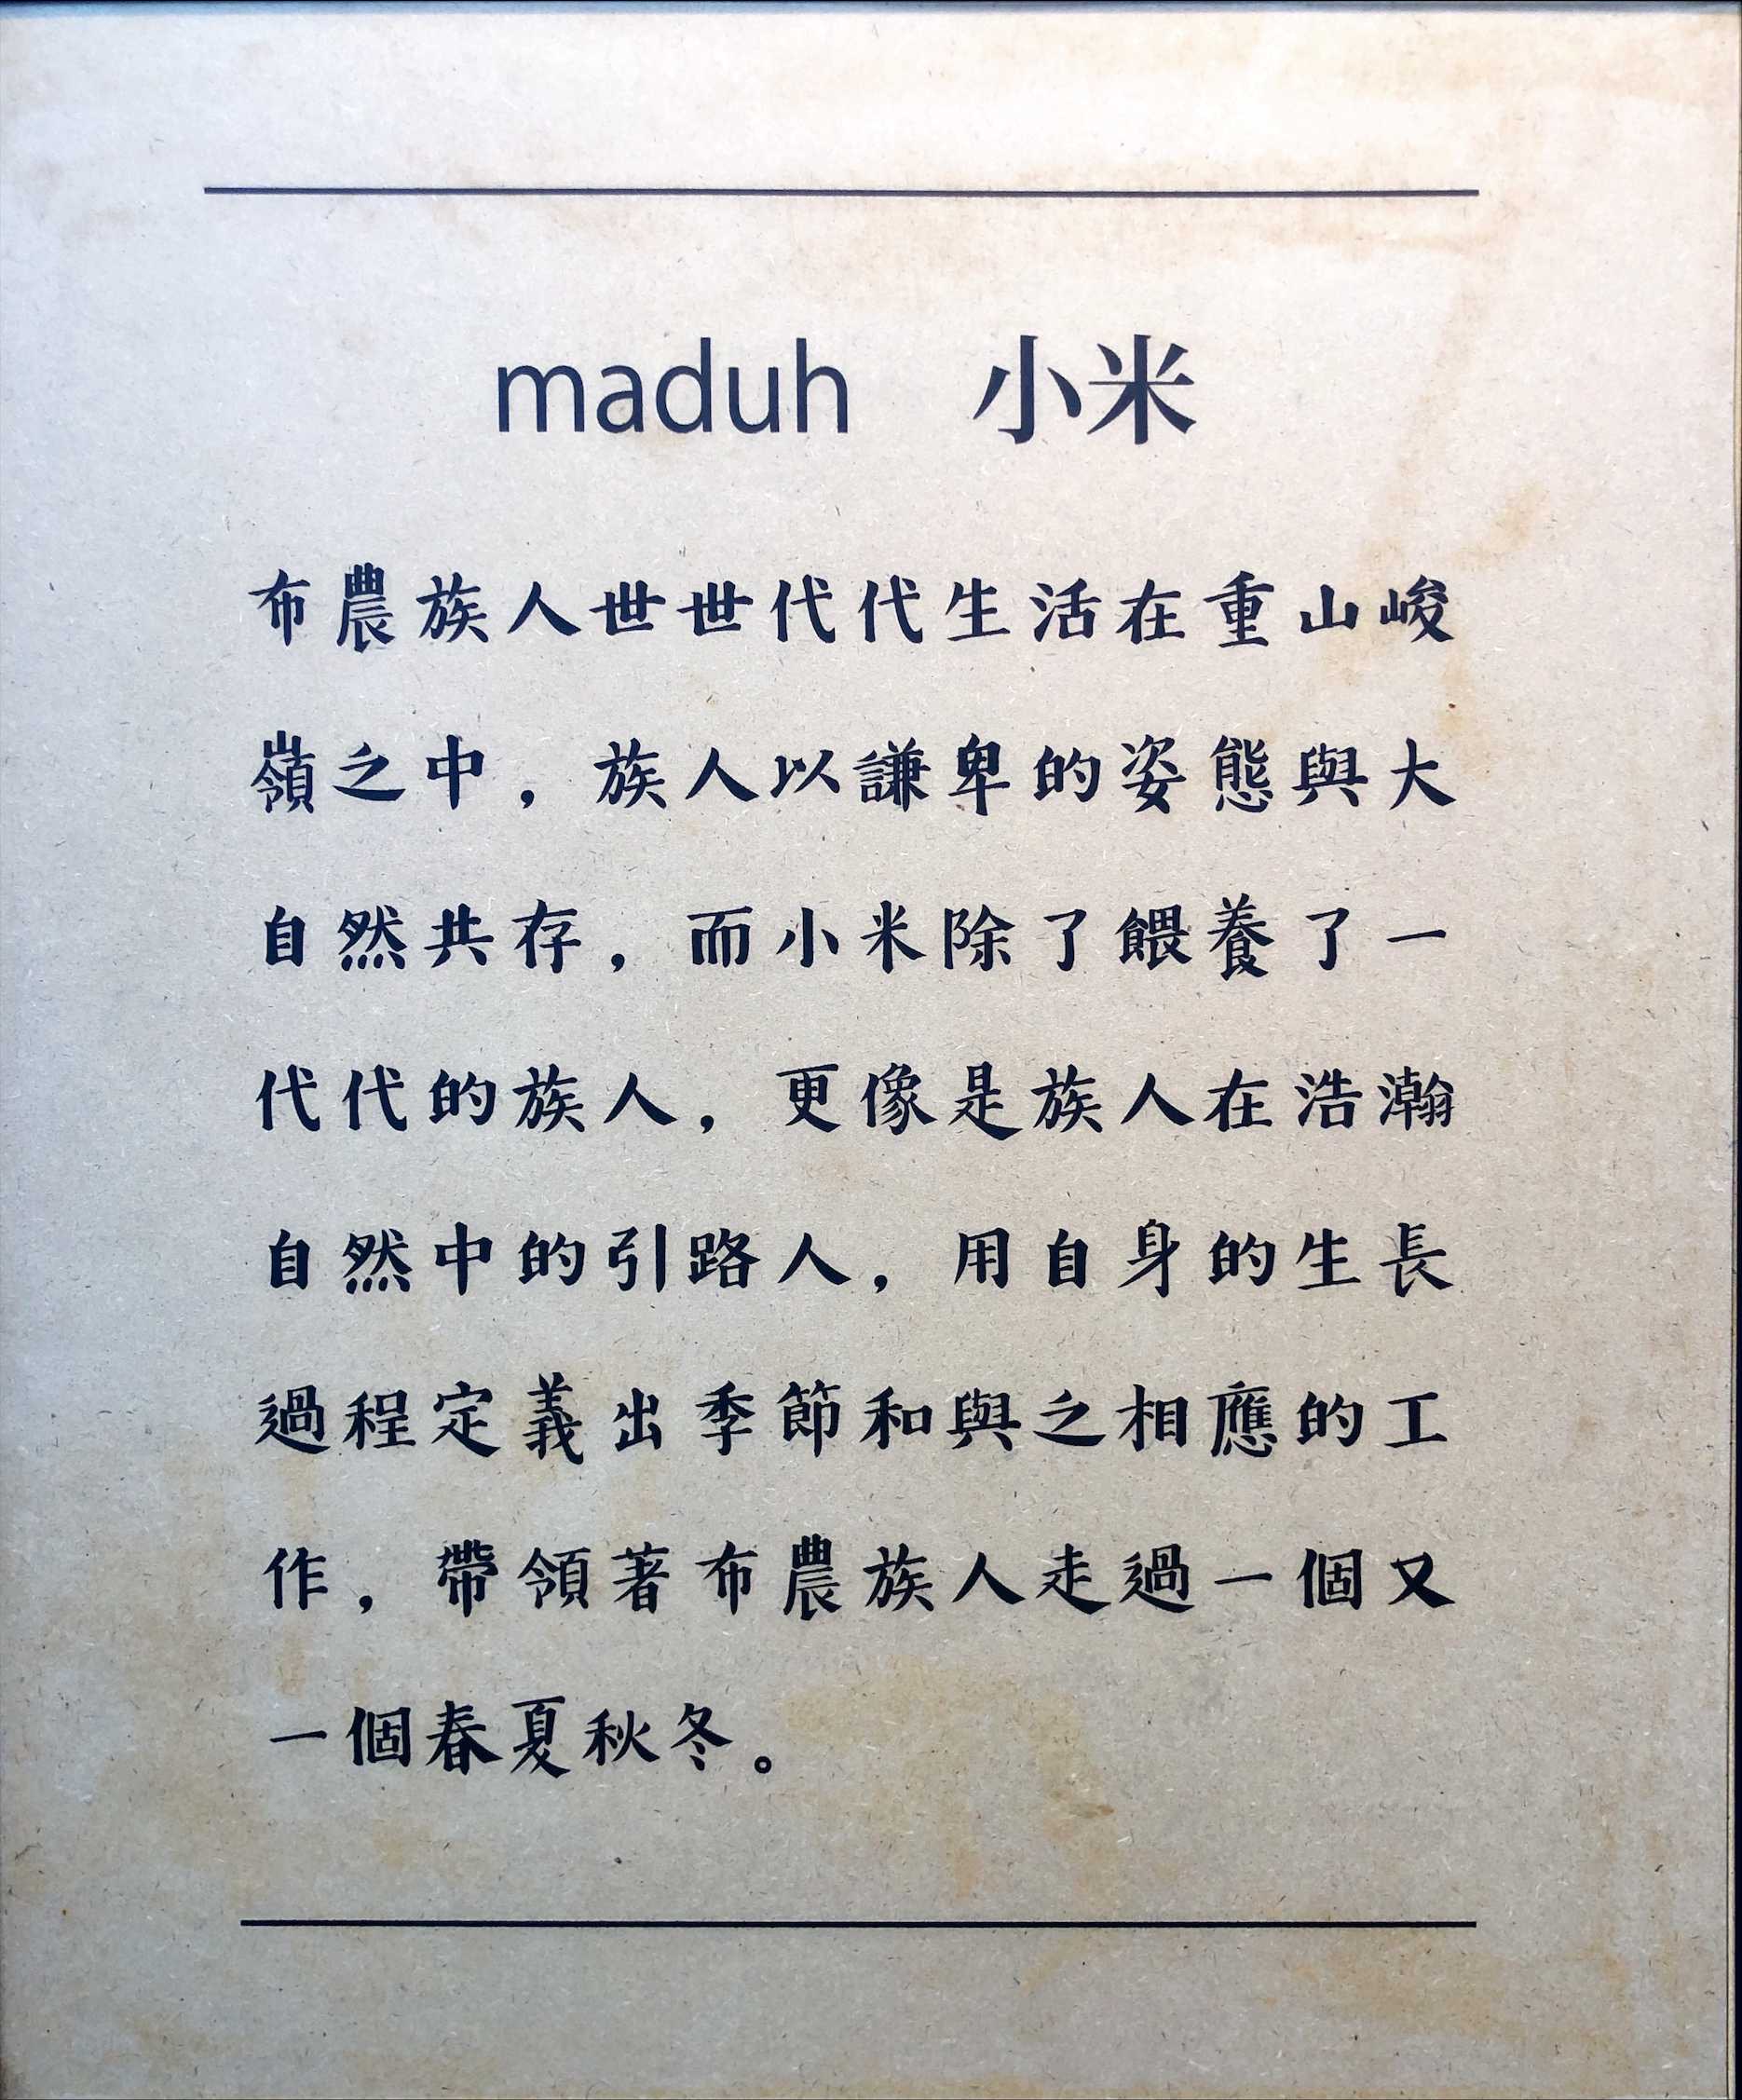 maduh 小米
布農族人世世代代生活在重山峻
嶺之中，族人以謙卑的姿態與大
自然共存，而小米除了餵養了一
代代的族人，更像是族人在浩瀚
自然中的引路人，用自身的生長
過程定義出季節和與之相應的工
作，帶領著布農族人走過一個又
一個春夏秋冬。